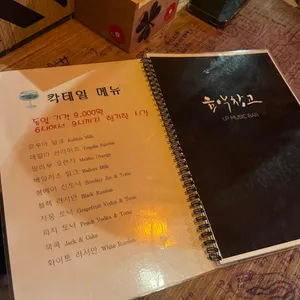 칵테일 메뉴
동일 가격 9,000원
6시에서 9시까지 럭키럭 시가
깔루아 밀크 Kahlua Milk
데킬라 선라이즈 Tequila Sunrise
말리부 오렌지 Malibu Orange
베일리스 밀크 Baileys Milk
봄베이 진토닉 Bombay Jin & Tonic
블랙 러시안 Black Russian
자몽 토닉 Grapefruit Vodka & Tonic
피치 토닉 Peach Vodka & Tonic
잭콕 Jack & Coke
화이트 러시안 White Russian
음악창고
LP MUSIC BAR